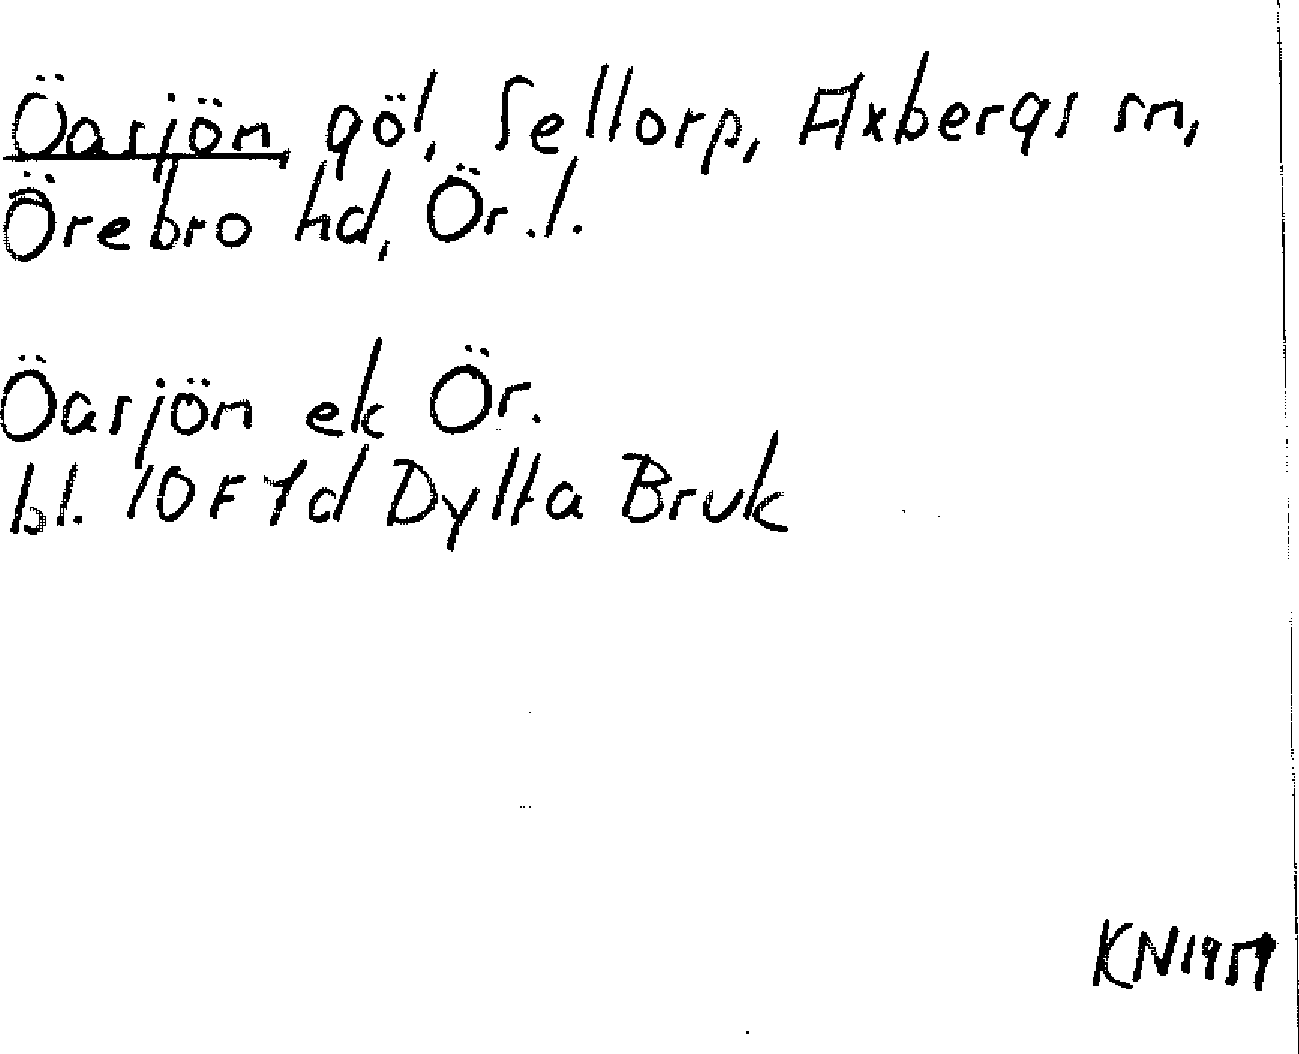 Öasjön, göl, Sellorp, Axbergs sn,
Örebro hd, Ör.l.
Öasjön ek Ör.
bl. 10F1d Dylta Bruk
KN1959